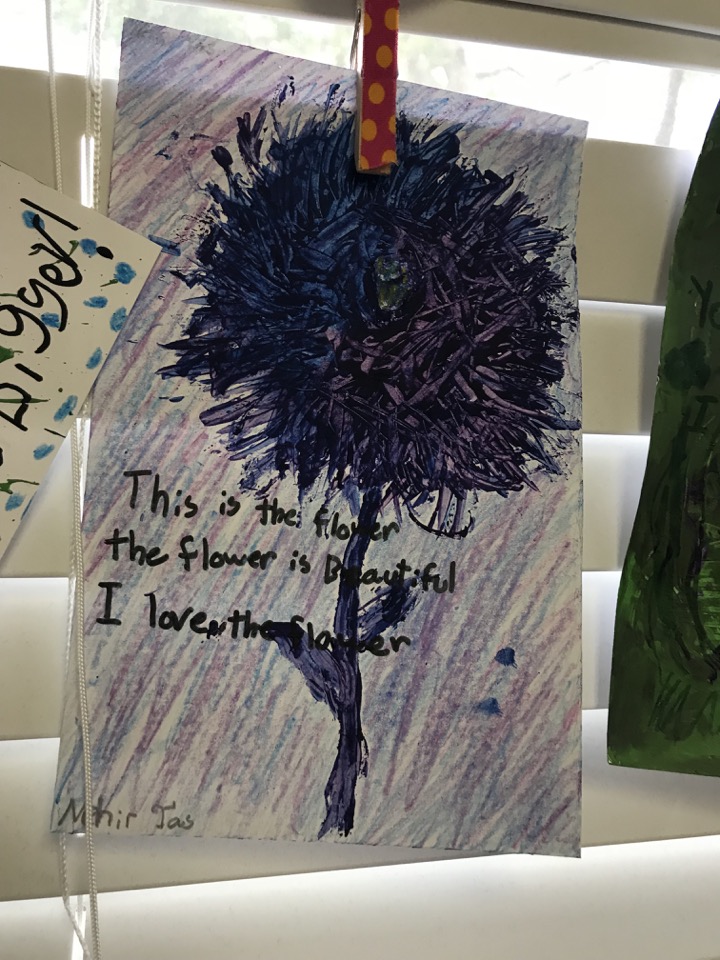 This is the flower
the flower is Beautiful
I love the flower
Mihir Jas
igger!
Yo
I